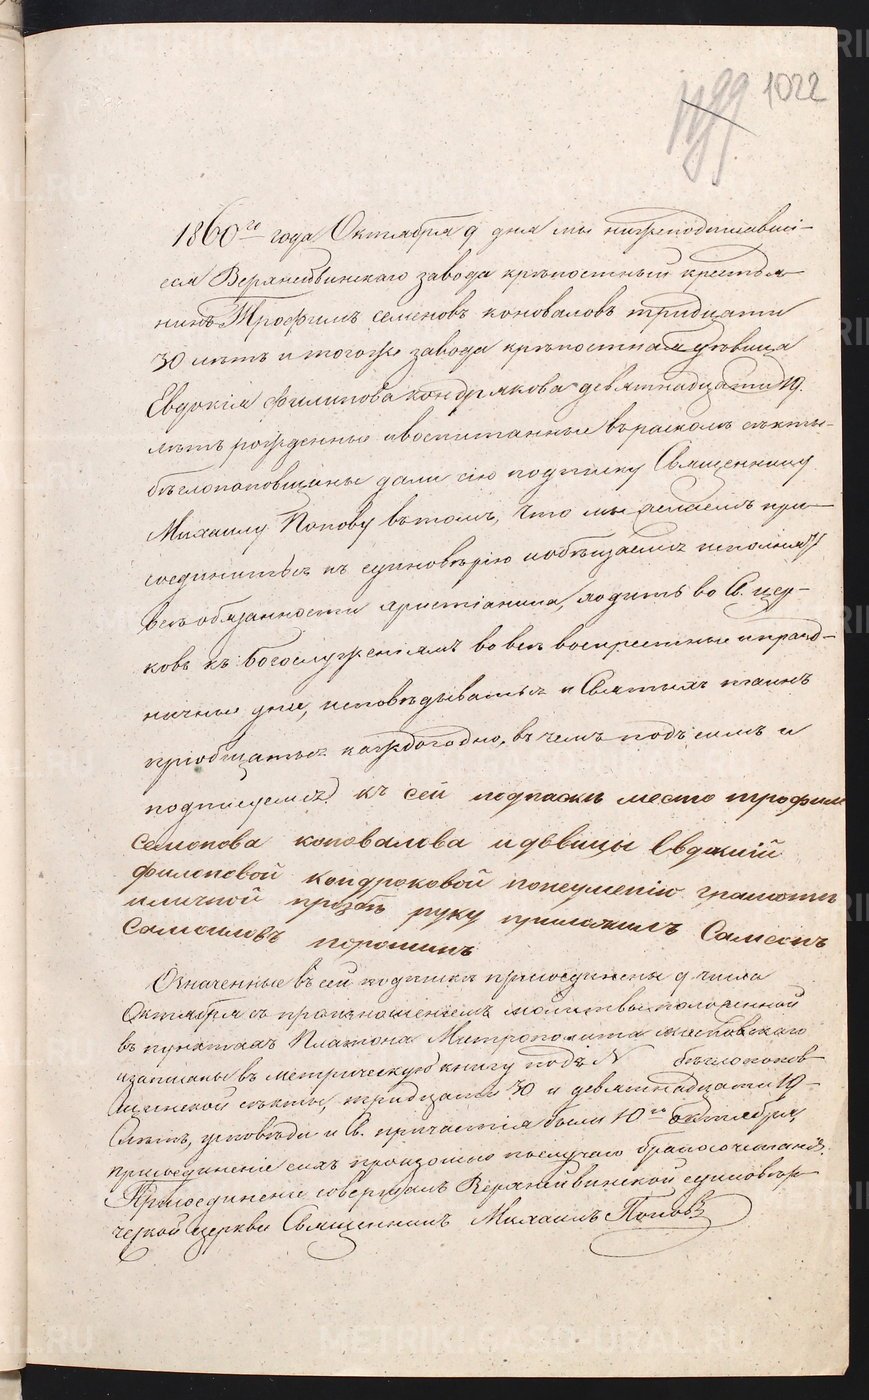 1022
1860го года Октября 9 дня мы нижеподписавші-
еся Верхнейвинскаго завода крѣпостный крестья-
нинъ Трофимъ Семеновъ Коноваловъ тридцати
30 лѣтъ и тогоже завода крѣпостная дѣвица
Евдокія Филипова Кондрякова девятнадцати 19
лѣтъ рожденные и воспитанные в расколѣ секты
бѣглопоповщины дали сію подписку Священнику
Михаилу Попову в томъ, что мы желаемъ при-
соединиться къ единовѣрію и обѣщаемся исполнять
всѣ обязанности христіанина, ходить во Св. цер-
ковь къ Богослуженіямъ во всѣ воскресные и празд-
ничные дни, исповѣдываться и Святыхъ таинъ
пріобщаться каждогодно, въ чемъ подъ симъ и
подписуемся къ сей подпискѣ место трофима
семонова коновалова и дѣвицы Евдокій
филиповой кондроковой понеумению грамоты
и личной прозбѣ руку приложилъ Самсонъ
Самоиловъ порошинъ
Означенные в сей подпискѣ присоединены 9 числа
Октября съ произношеніемъ молитвы положенной
въ пунктахъ Платона Митрополита Московскаго
и записаны въ метрическую книгу подъ N бѣглопопов
щинской секты, тридцати 30 и девятнадцати 19-
лѣтъ, у исповѣди и Св. причастія были 10го октября,
присоединеніе сихъ произошло по случаю бракосочетанія.
Присоединеніе совершалъ Верхнейвинской единовѣр
ческой церкви Священникъ Михаилъ Поповъ
METRIKI.GASO-URAL.RU